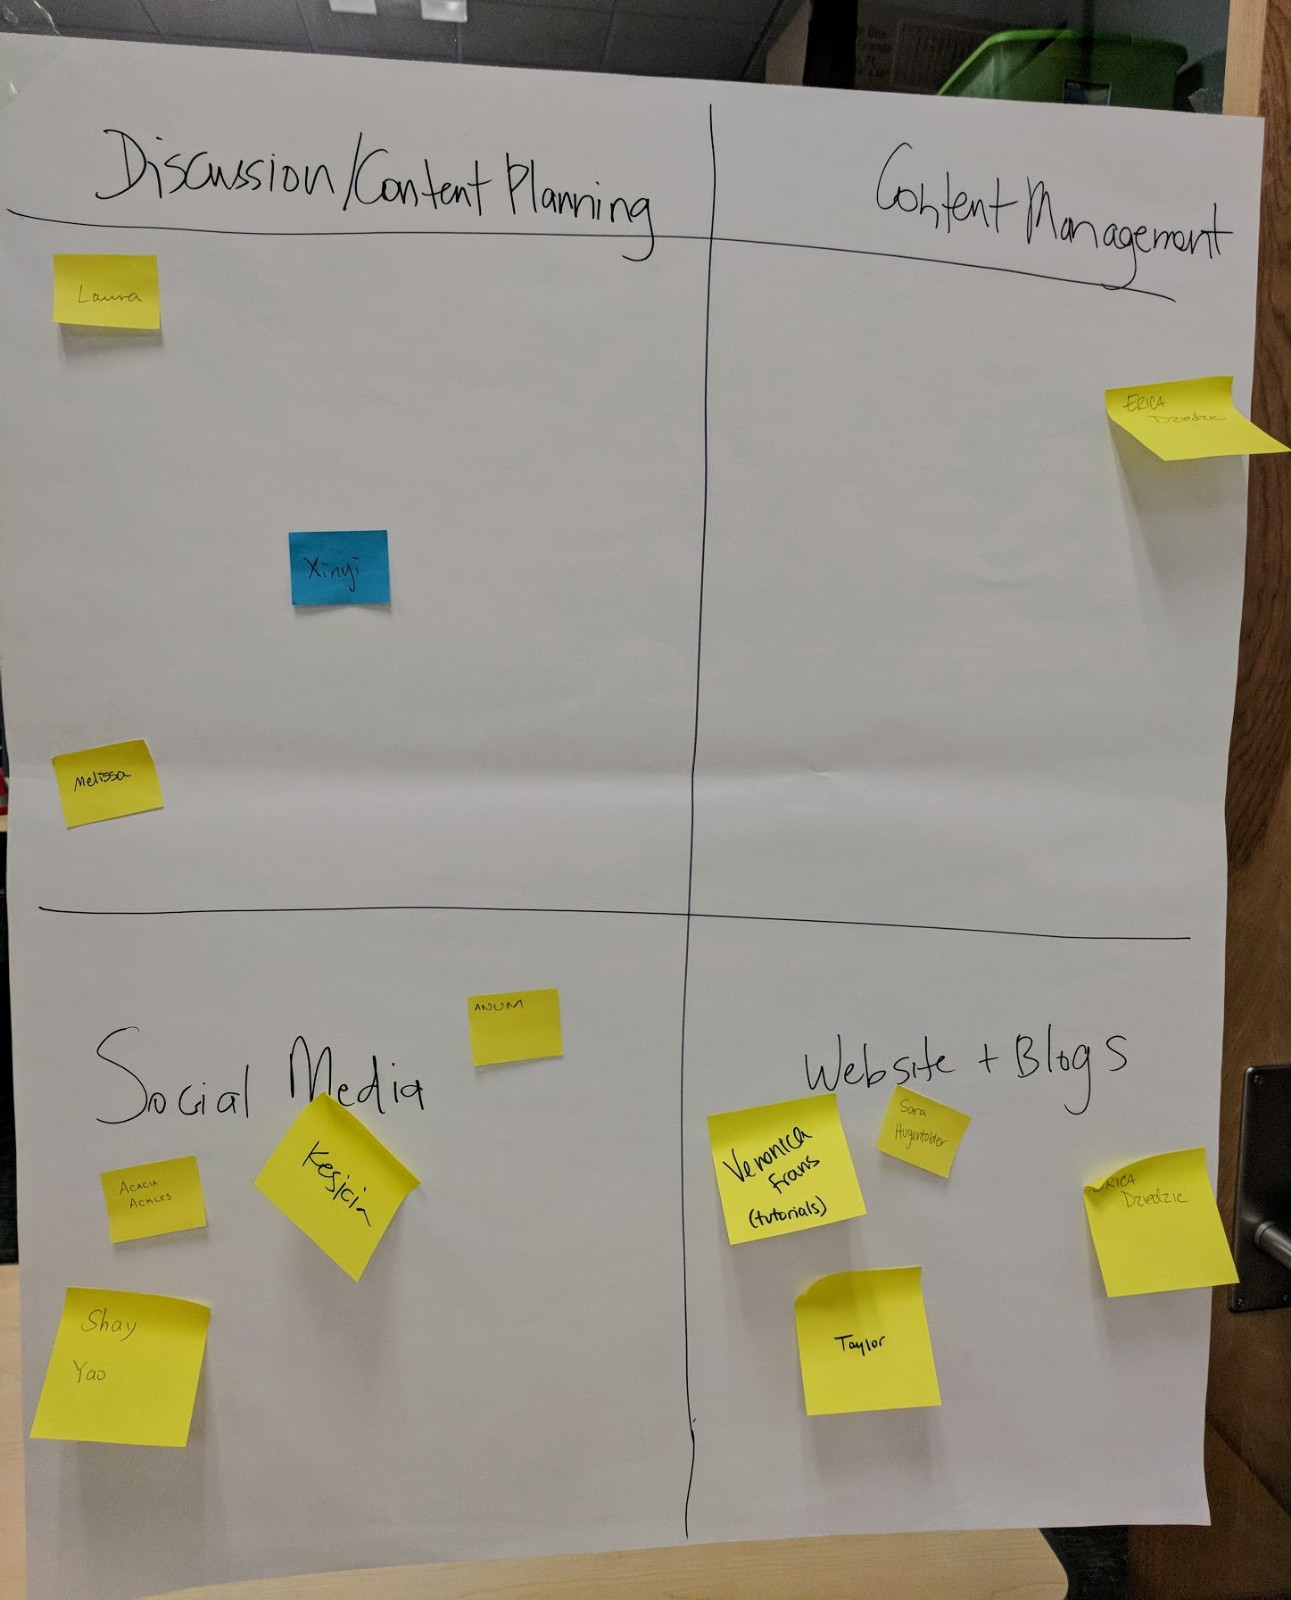 Discussion/Content Planning
Content Management
Laura
Xinyi
Melissa
ERICA
Dziedzic
Social Media
ANUM
ACACIA
ACKLES
Kesicia
Shay
Yao
Website + Blogs
Veronica
Frans
(tutorials)
Sara
Hugentobler
ERICA
Dziedzic
Taylor